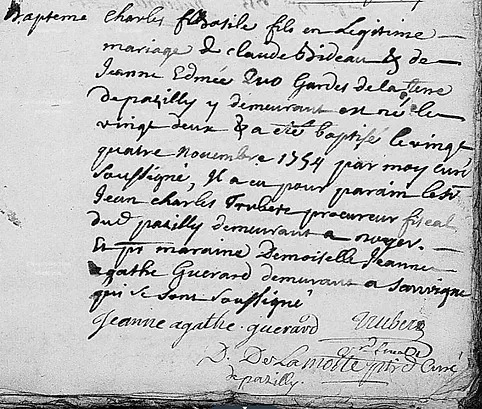 Bapteme Charles Basile fils en Legitime
mariage de claude Bideau & de
Jeanne Edmée Duo Gardes de la terre
de pazilly y demeurant est né le
vingt deux & a eté baptisé le vingt
quatre novembre 1754 par moy curé
soussigné, Il a eu pour parain le sr
Jean charles Trubert procureur fiscal
dud pazilly demeurant a noyer.
Et pr maraine Demoiselle Jeanne
agathe Guerard demeurant a Sauvigne
qui se sont soussigné
Jeanne agathe guerard Trubert
D. De Lamotte ptr Curé
de pazilly.